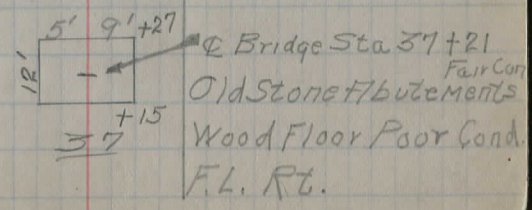 5' 9' +27
12'
+15
37
℄ Bridge Sta 37+21
Fair Con
Old Stone Abutements
Wood Floor Poor Cond.
F.L. Rt.